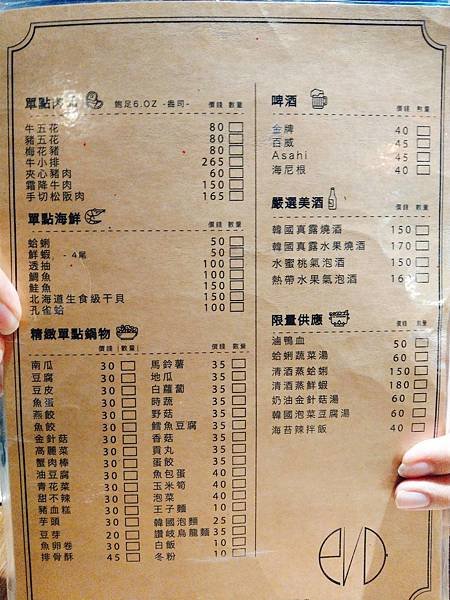 單點肉品 飽足6.OZ -壽司- 價錢 數量
牛五花 80
豬五花 80
梅花豬 80
牛小排 265
夾心豬肉 60
霜降牛肉 150
手切松阪肉 165
單點海鮮 價錢 數量
蛤蜊 50
鮮蝦 - 4尾 50
透抽 100
鯛魚 100
鮭魚 150
北海道生食級干貝 150
孔雀蛤 100
精緻單點鍋物
價錢 數量 價錢 數量
南瓜 30 馬鈴薯 35
豆腐 30 地瓜 35
豆皮 30 白蘿蔔 35
魚蛋 30 時蔬 35
燕餃 30 野菇 35
魚餃 30 鱈魚豆腐 35
金針菇 30 香菇 35
高麗菜 30 貢丸 35
蟹肉棒 30 蛋餃 35
油豆腐 30 魚包蛋 40
青花菜 30 玉米筍 40
甜不辣 30 泡菜 40
豬血糕 30 王子麵 10
芋頭 30 韓國泡麵 25
豆芽 20 讚岐烏龍麵 35
魚卵卷 30 白飯 10
排骨酥 45 冬粉 10
啤酒 價錢 數量
金牌 40
百威 45
Asahi 45
海尼根 40
嚴選美酒 價錢 數量
韓國真露燒酒 150
韓國真露水果燒酒 170
水蜜桃氣泡酒 150
熱帶水果氣泡酒 16
限量供應 價錢 數量
滷鴨血 50
蛤蜊蔬菜湯 60
清酒蒸蛤蜊 150
清酒蒸鮮蝦 180
奶油金針菇湯 60
韓國泡菜豆腐湯 60
海苔辣拌飯 40